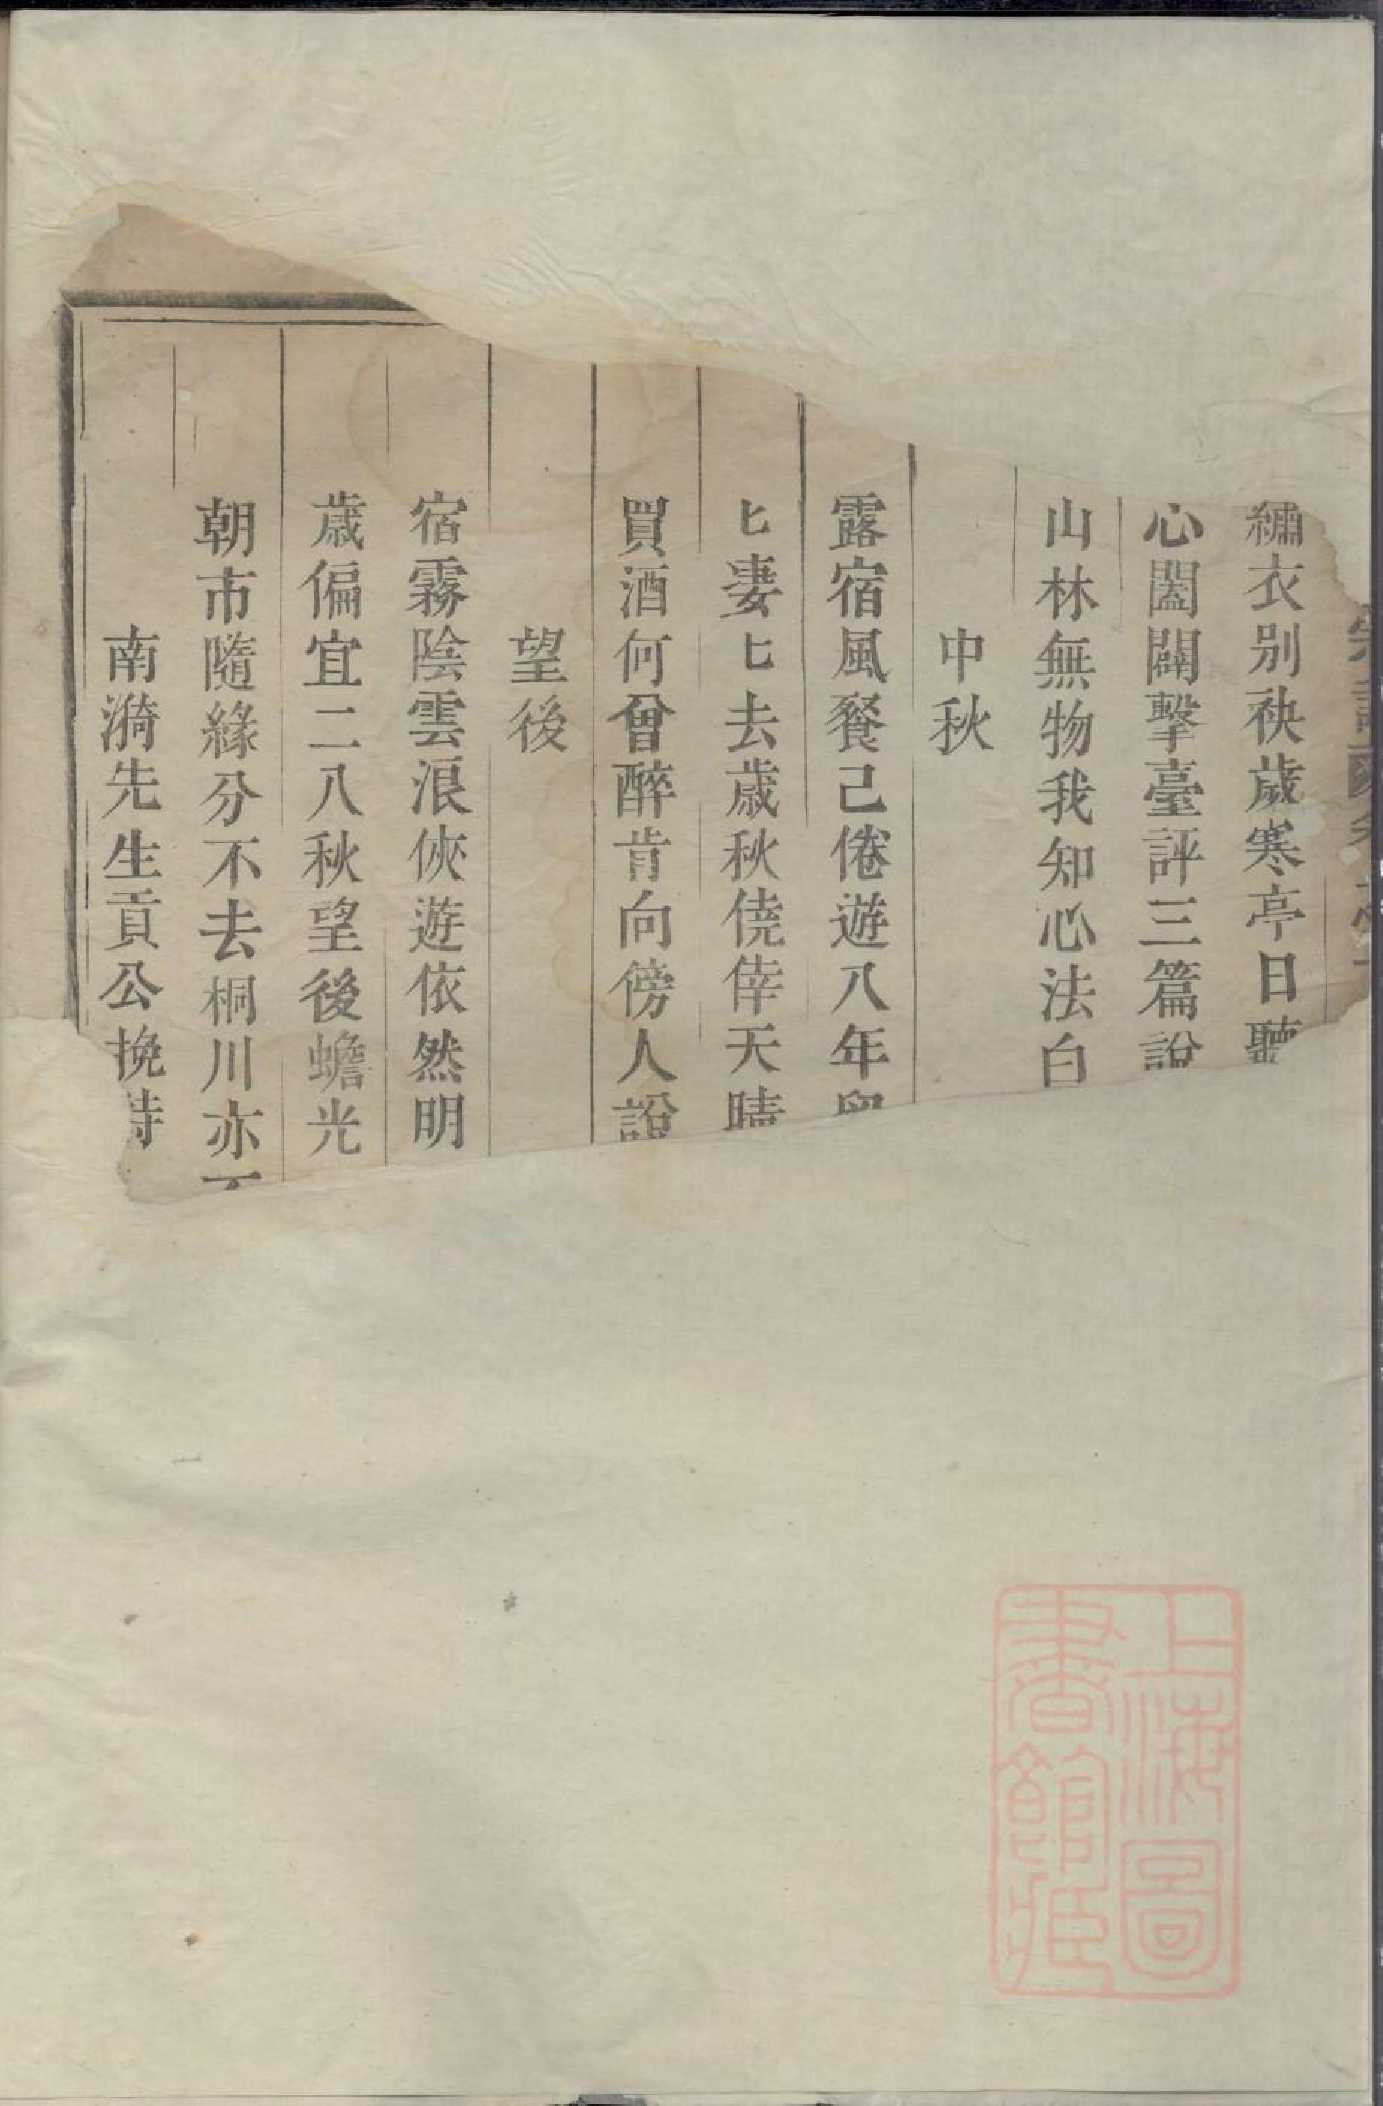 繡衣别袂歲寒亭日聽
心闔闢擊臺評三篇說
山林無物我知心法白
中秋
露宿風餐己倦遊八年
匕妻匕去歲秋僥倖天晴
買酒何曾醉肯向傍人說
望後
宿霧陰雲浪俠遊依然明
歳偏宜二八秋望後蟾光
朝市隨緣分不去桐川亦不
南漪先生貢公挽詩
上海圖
書館藏